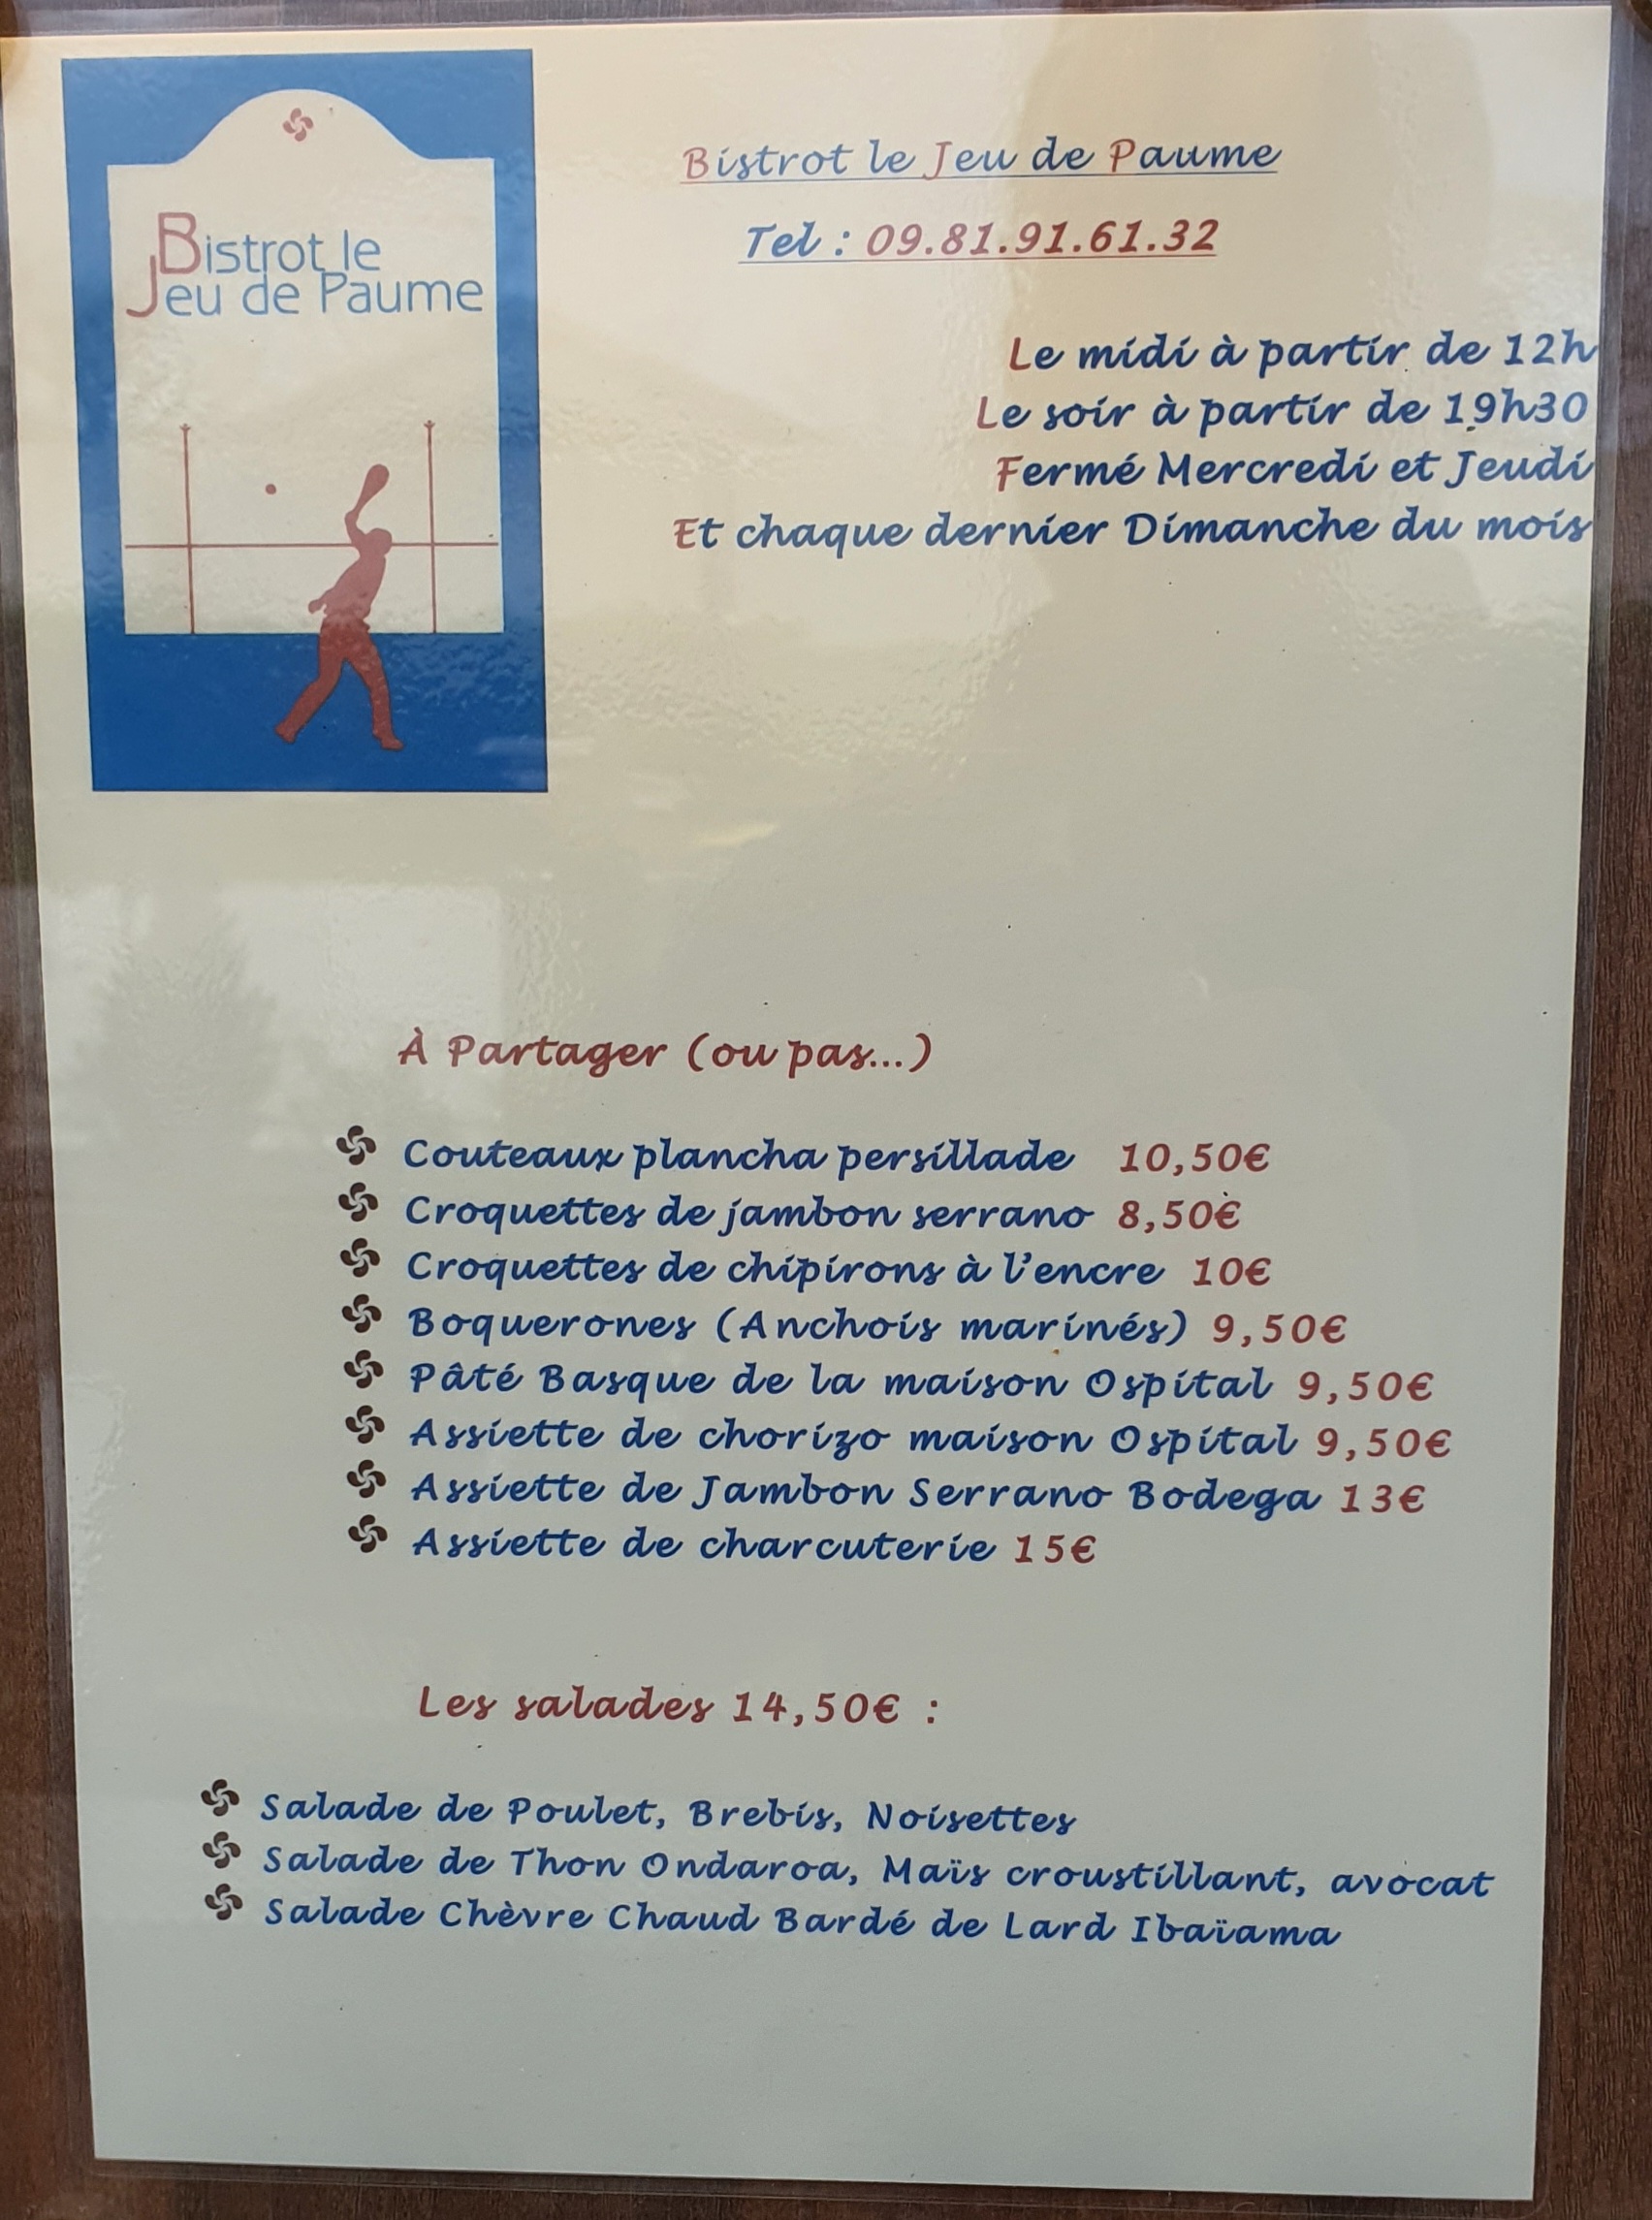 Bistrot le
Jeu de Paume
Bistrot le Jeu de Paume
Tel : 09.81.91.61.32
Le midi à partir de 12h
Le soir à partir de 19h30
Fermé Mercredi et Jeudi
Et chaque dernier Dimanche du mois
À Partager (ou pas...)
Couteaux plancha persillade 10,50€
Croquettes de jambon serrano 8,50€
Croquettes de chipirons à l'encre 10€
Boquerones (Anchois marinés) 9,50€
Pâté Basque de la maison Ospital 9,50€
Assiette de chorizo maison Ospital 9,50€
Assiette de Jambon Serrano Bodega 13€
Assiette de charcuterie 15€
Les salades 14,50€ :
Salade de Poulet, Brebis, Noisettes
Salade de Thon Ondaroa, Maïs croustillant, avocat
Salade Chèvre Chaud Bardé de Lard Ibaïama